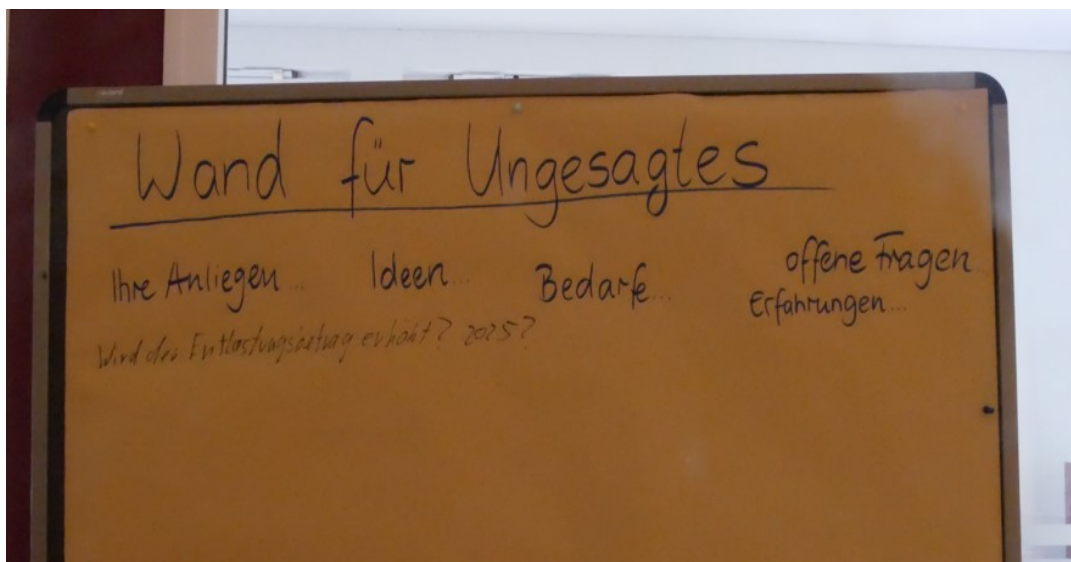 Wand für Ungesagtes
Ihre Anliegen... Ideen... Bedarfe... offene Fragen
Erfahrungen...
Wird der Entlastungsbetrag erhöht? 2025?